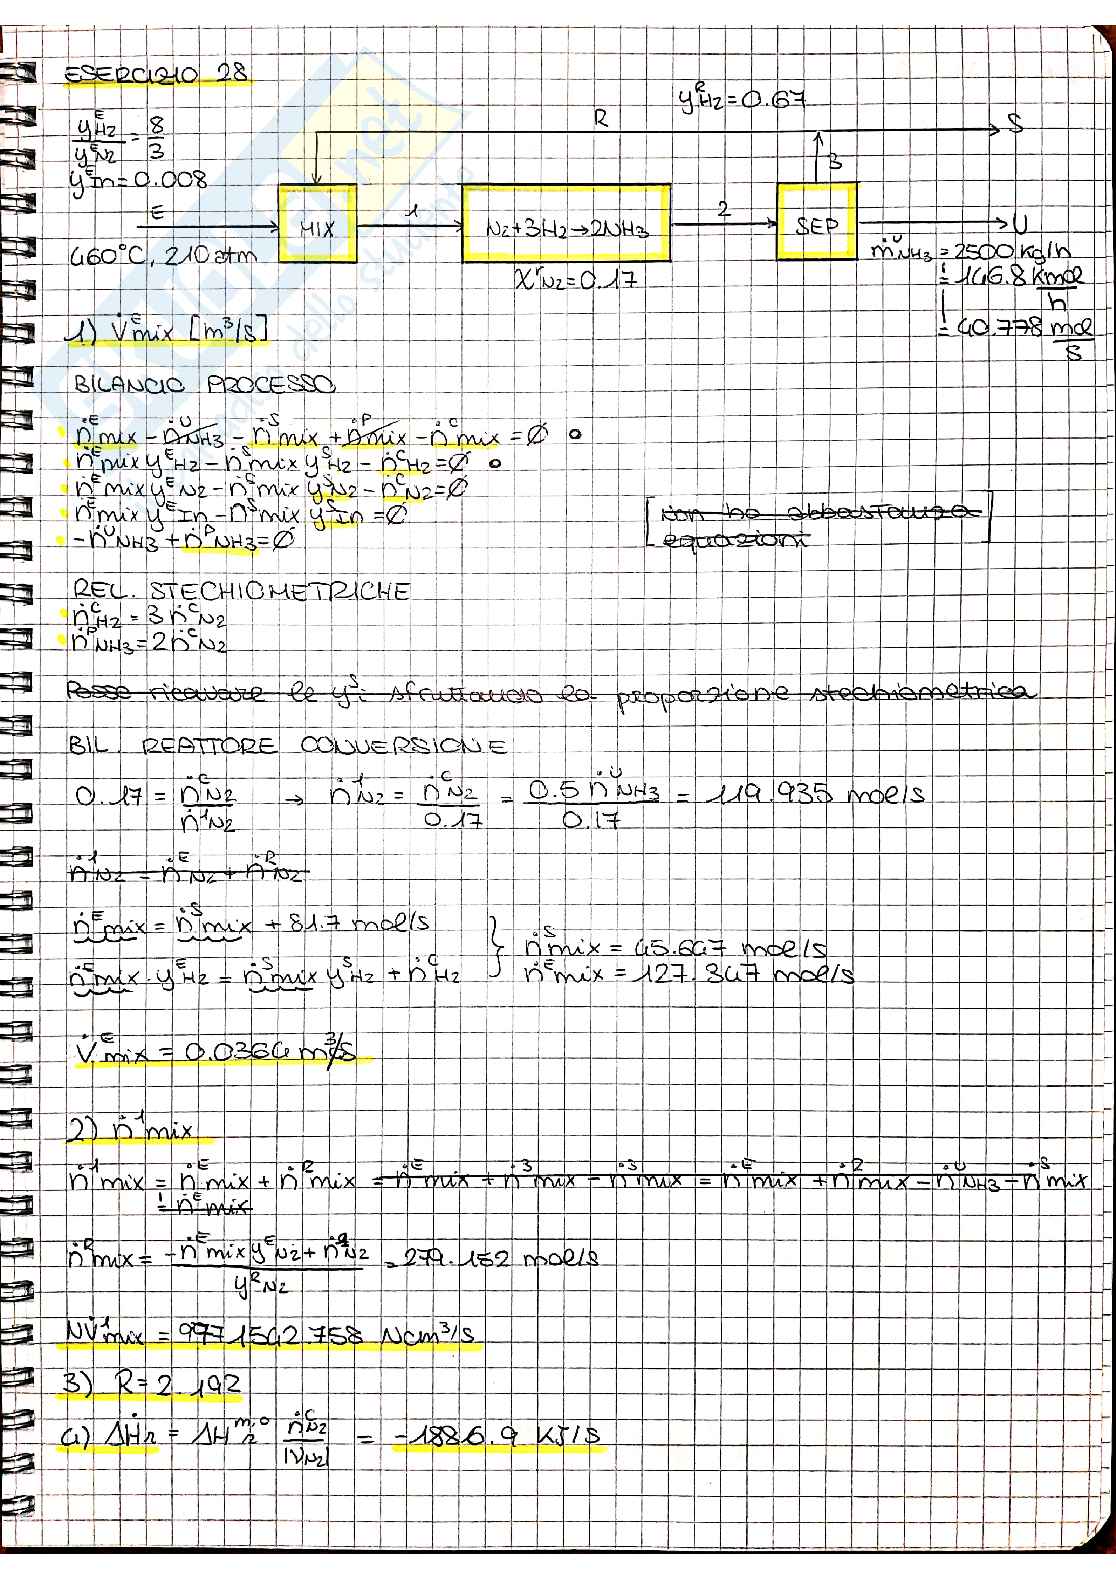 ESERCIZIO 28
yᴱH2/yᴱN2 = 8/3
yᴱIn = 0.008
R
yᴿH2 = 0.67
S
3
E
MIX
1
N2+3H2→2NH3
2
SEP
U
460°C, 210 atm
XʳN2 = 0.17
ṁᵁNH3 = 2500 Kg/h
= 146.8 Kmol/h
= 40.778 mol/s
1) V̇ᴱmix [m³/s]
BILANCIO PROCESSO
ṅᴱmix - ṅᵁNH3 - ṅˢmix + ṅᴾmix - ṅᶜmix = Ø
ṅᴱmix yᴱH2 - ṅˢmix yˢH2 - ṅᶜH2 = Ø
ṅᴱmix yᴱN2 - ṅˢmix yˢN2 - ṅᶜN2 = Ø
ṅᴱmix yᴱIn - ṅˢmix yˢIn = Ø
-ṅᵁNH3 + ṅᴾNH3 = Ø
non ho abbastanza
equazioni
REL. STECHIOMETRICHE
ṅᶜH2 = 3 ṅᶜN2
ṅᴾNH3 = 2 ṅᶜN2
Posso ricavare le yˢi sfruttando la proporzione stechiometrica
BIL. REATTORE CONVERSIONE
0.17 = ṅᶜN2/ṅ¹N2 → ṅ¹N2 = ṅᶜN2/0.17 = 0.5 ṅᵁNH3/0.17 = 119.935 mol/s
ṅ¹N2 = ṅᴱN2 + ṅᴿN2
ṅᴱmix = ṅˢmix + 81.7 mol/s
ṅᴱmix · yᴱH2 = ṅˢmix yˢH2 + ṅᶜH2
ṅˢmix = 45.647 mol/s
ṅᴱmix = 127.347 mol/s
V̇ᴱmix = 0.0364 m³/s
2) ṅ¹mix
ṅ¹mix = ṅᴱmix + ṅᴿmix = ṅᴱmix + ṅ³mix - ṅ³mix = ṅᴱmix + ṅ²mix - ṅᵁNH3 - ṅˢmix
= ṅᴱmix
ṅᴿmix = (-ṅᴱmix yᴱN2 + ṅ¹N2)/yᴿN2 = 279.152 mol/s
NV̇¹mix = 9971542.758 Ncm³/s
3) R = 2.192
4) ΔḢr = ΔHᵐ,°r ṅᶜN2/|νN2| = -1886.9 KJ/s